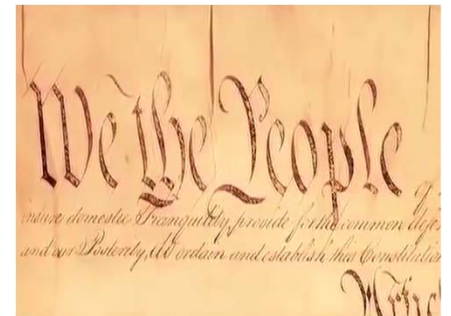 We the People
insure domestic Tranquility, provide for the common defen
and our Posterity, do ordain and establish this Constitution
Artic